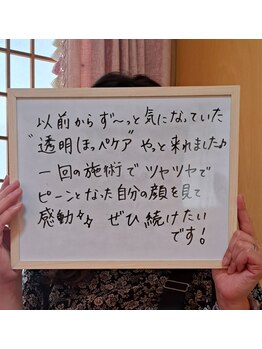 以前からず〜っと気になっていた
"透明ほっぺケア" やっと来れました♪
一回の施術で ツヤツヤで
ピーンとなった自分の顔を見て
感動✨ ぜひ続けたい
です!